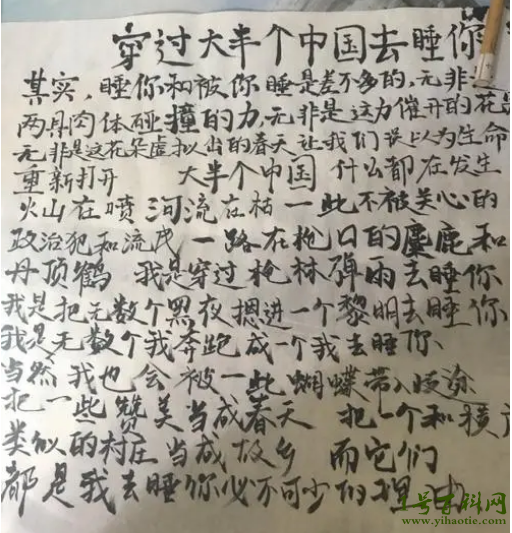 穿过大半个中国去睡你
其实,睡你和被你睡是差不多的,无非是
两具肉体碰撞的力,无非是这力催开的花朵
无非是这花朵虚拟出的春天让我们误以为生命
重新打开 大半个中国 什么都在发生
火山在喷 河流在枯 一些不被关心的
政治犯和流民 一路在枪口的麋鹿和
丹顶鹤 我是穿过枪林弹雨去睡你
我是把无数个黑夜摁进一个黎明去睡你
我是无数个我奔跑成一个我去睡你、
当然我也会被一些蝴蝶带入歧途
把一些赞美当成春天 把一个和横店
类似的村庄当成故乡 而它们
都是我去睡你必不可少的理由
1号百科网
www.yihaotie.com